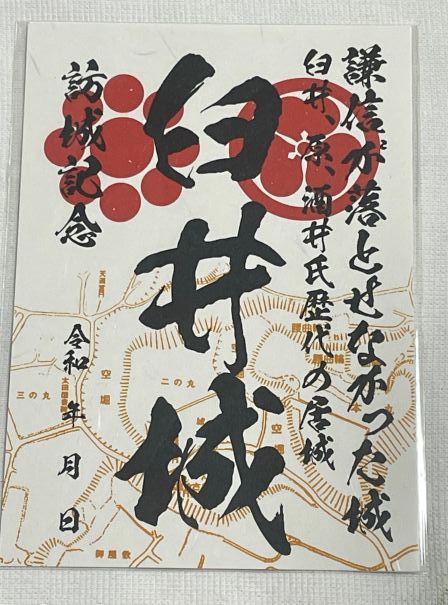 謙信が落とせなかった城
臼井、原、酒井氏歴代の居城
臼井城
訪城記念
令和 年 月 日
腰曲輪
腰曲輪
天満宮
空堀
二の丸
三の丸
太田図書墓
空堀
御屋敷